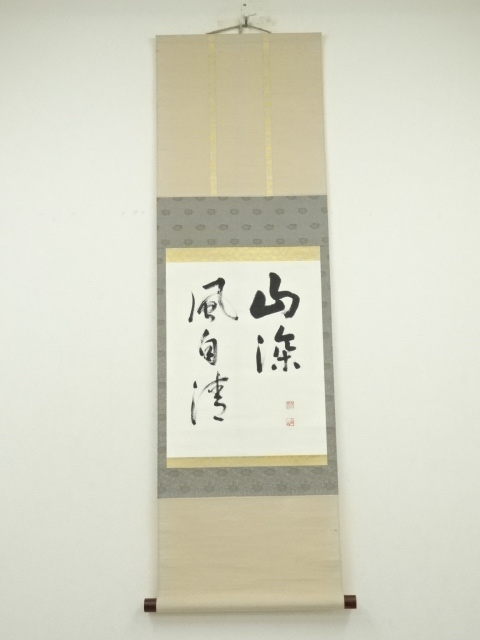 山深
風自清